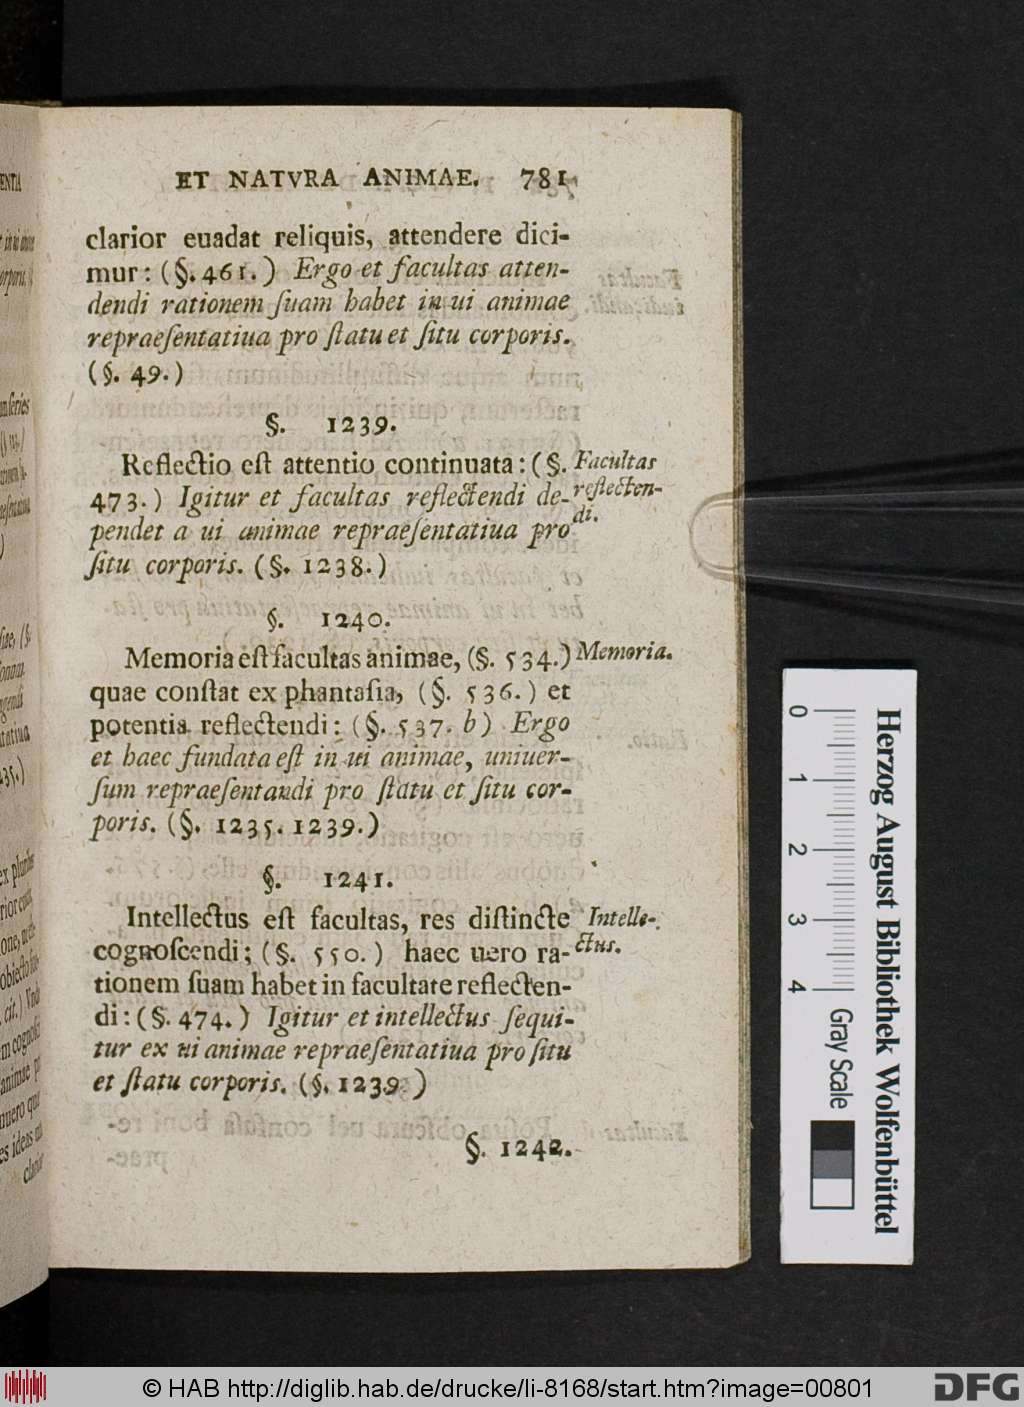 ET NATVRA ANIMAE. 781
clarior euadat reliquis, attendere dici-
mur: (§. 461.) Ergo et facultas atten-
dendi rationem ſuam habet in ui animae
repraeſentatiua pro ſtatu et ſitu corporis.
(§. 49.)
§. 1239.
Reflectio eſt attentio continuata: (§.
473.) Igitur et facultas reflectendi de-
pendet a ui animae repraeſentatiua pro
ſitu corporis. (§. 1238.)
Facultas
reflecten-
di.
§. 1240.
Memoria eſt facultas animae, (§. 534.)
quae conſtat ex phantaſia, (§. 536.) et
potentia reflectendi: (§. 537. b) Ergo
et haec fundata eſt in ui animae, uniuer-
ſum repraeſentandi pro ſtatu et ſitu cor-
poris. (§. 1235. 1239.)
Memoria.
§. 1241.
Intellectus eſt facultas, res diſtincte
cognoſcendi; (§. 550.) haec uero ra-
tionem ſuam habet in facultate reflecten-
di: (§. 474.) Igitur et intellectus ſequi-
tur ex ui animae repraeſentatiua pro ſitu
et ſtatu corporis. (§. 1239.)
Intelle-
ctus.
§. 1242.
0 1 2 3 4
Gray Scale
Herzog August Bibliothek Wolfenbüttel
© HAB http://diglib.hab.de/drucke/li-8168/start.htm?image=00801
DFG